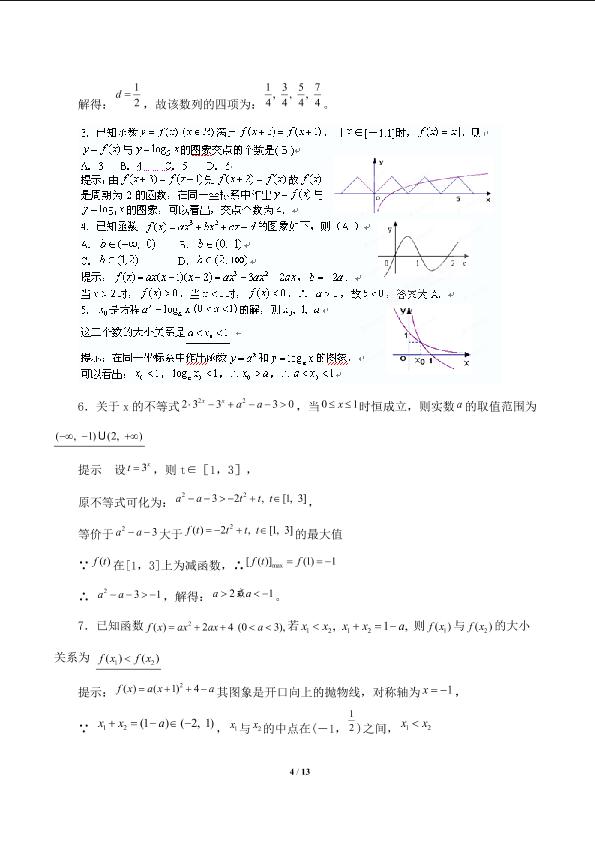 解得：d = 1/2，故该数列的四项为：1/4, 3/4, 5/4, 7/4。
y = f(x) 与 y = log₅x 的图象交点的个数是( B )
A. 3 B. 4 C. 5 D. 6
是周期为 2 的函数，在同一坐标系中作出 y = f(x) 与
y = log₅x 的图象，可以看出，交点个数为 4.
4. 已知函数 f(x) = ax³ + bx² + cx + d 的图象如下，则（ A ）
A. b∈(−∞, 0) B. b∈(0, 1)
C. b∈(1,2) D. b∈(2,+∞)
提示：f(x) = ax(x−1)(x−2) = ax³ − 3ax² + 2ax，b = −3a.
这三个数的大小关系是 a < x₀ < 1
提示：在同一坐标系中作出函数 y = aˣ 和 y = logₐx 的图象，
可以看出：x₀ < 1，logₐ x₀ < 1，∴ x₀ > a，∴ a < x₀ < 1
6．关于 x 的不等式 2·3²ˣ − 3ˣ + a² − a − 3 > 0，当 0 ≤ x ≤ 1 时恒成立，则实数 a 的取值范围为
(−∞, −1)∪(2, +∞)
提示 设 t = 3ˣ，则 t∈［1，3］，
原不等式可化为：a² − a − 3 > −2t² + t, t∈[1, 3]，
等价于 a² − a − 3 大于 f(t) = −2t² + t, t∈[1, 3] 的最大值
∵ f(t) 在[1，3]上为减函数，∴[f(t)]max = f(1) = −1
∴ a² − a − 3 > −1，解得：a > 2 或 a < −1。
7．已知函数 f(x) = ax² + 2ax + 4 (0 < a < 3), 若 x₁ < x₂, x₁ + x₂ = 1 − a, 则 f(x₁) 与 f(x₂) 的大小
关系为 f(x₁) < f(x₂)
提示：f(x) = a(x + 1)² + 4 − a 其图象是开口向上的抛物线，对称轴为 x = −1，
∵ x₁ + x₂ = (1 − a)∈(−2, 1)，x₁ 与 x₂ 的中点在(−1，1/2)之间，x₁ < x₂
4 / 13